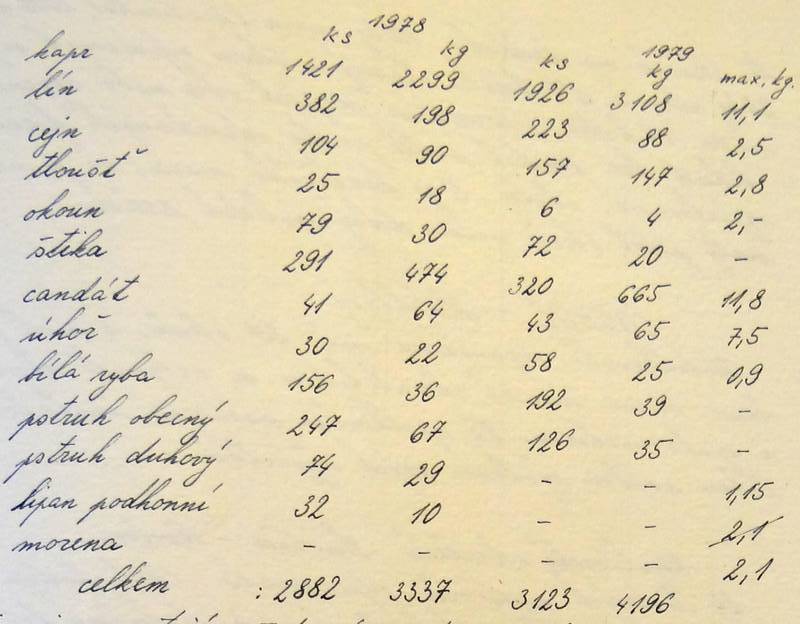 1978 1979
ks kg ks kg max, kg.
kapr 1421 2299 1926 3108 11,1
lín 382 198 223 88 2,5
cejn 104 90 157 147 2,8
tloušť 25 18 6 4 2,-
okoun 79 30 72 20 -
štika 291 474 320 665 11,8
candát 41 64 43 65 7,5
úhoř 30 22 58 25 0,9
bílá ryba 156 36 192 39 -
pstruh obecný 247 67 126 35 -
pstruh duhový 74 29 - - 1,15
lipan podhonní 32 10 - - 2,1
morena - - - - 2,1
celkem : 2882 3337 3123 4196